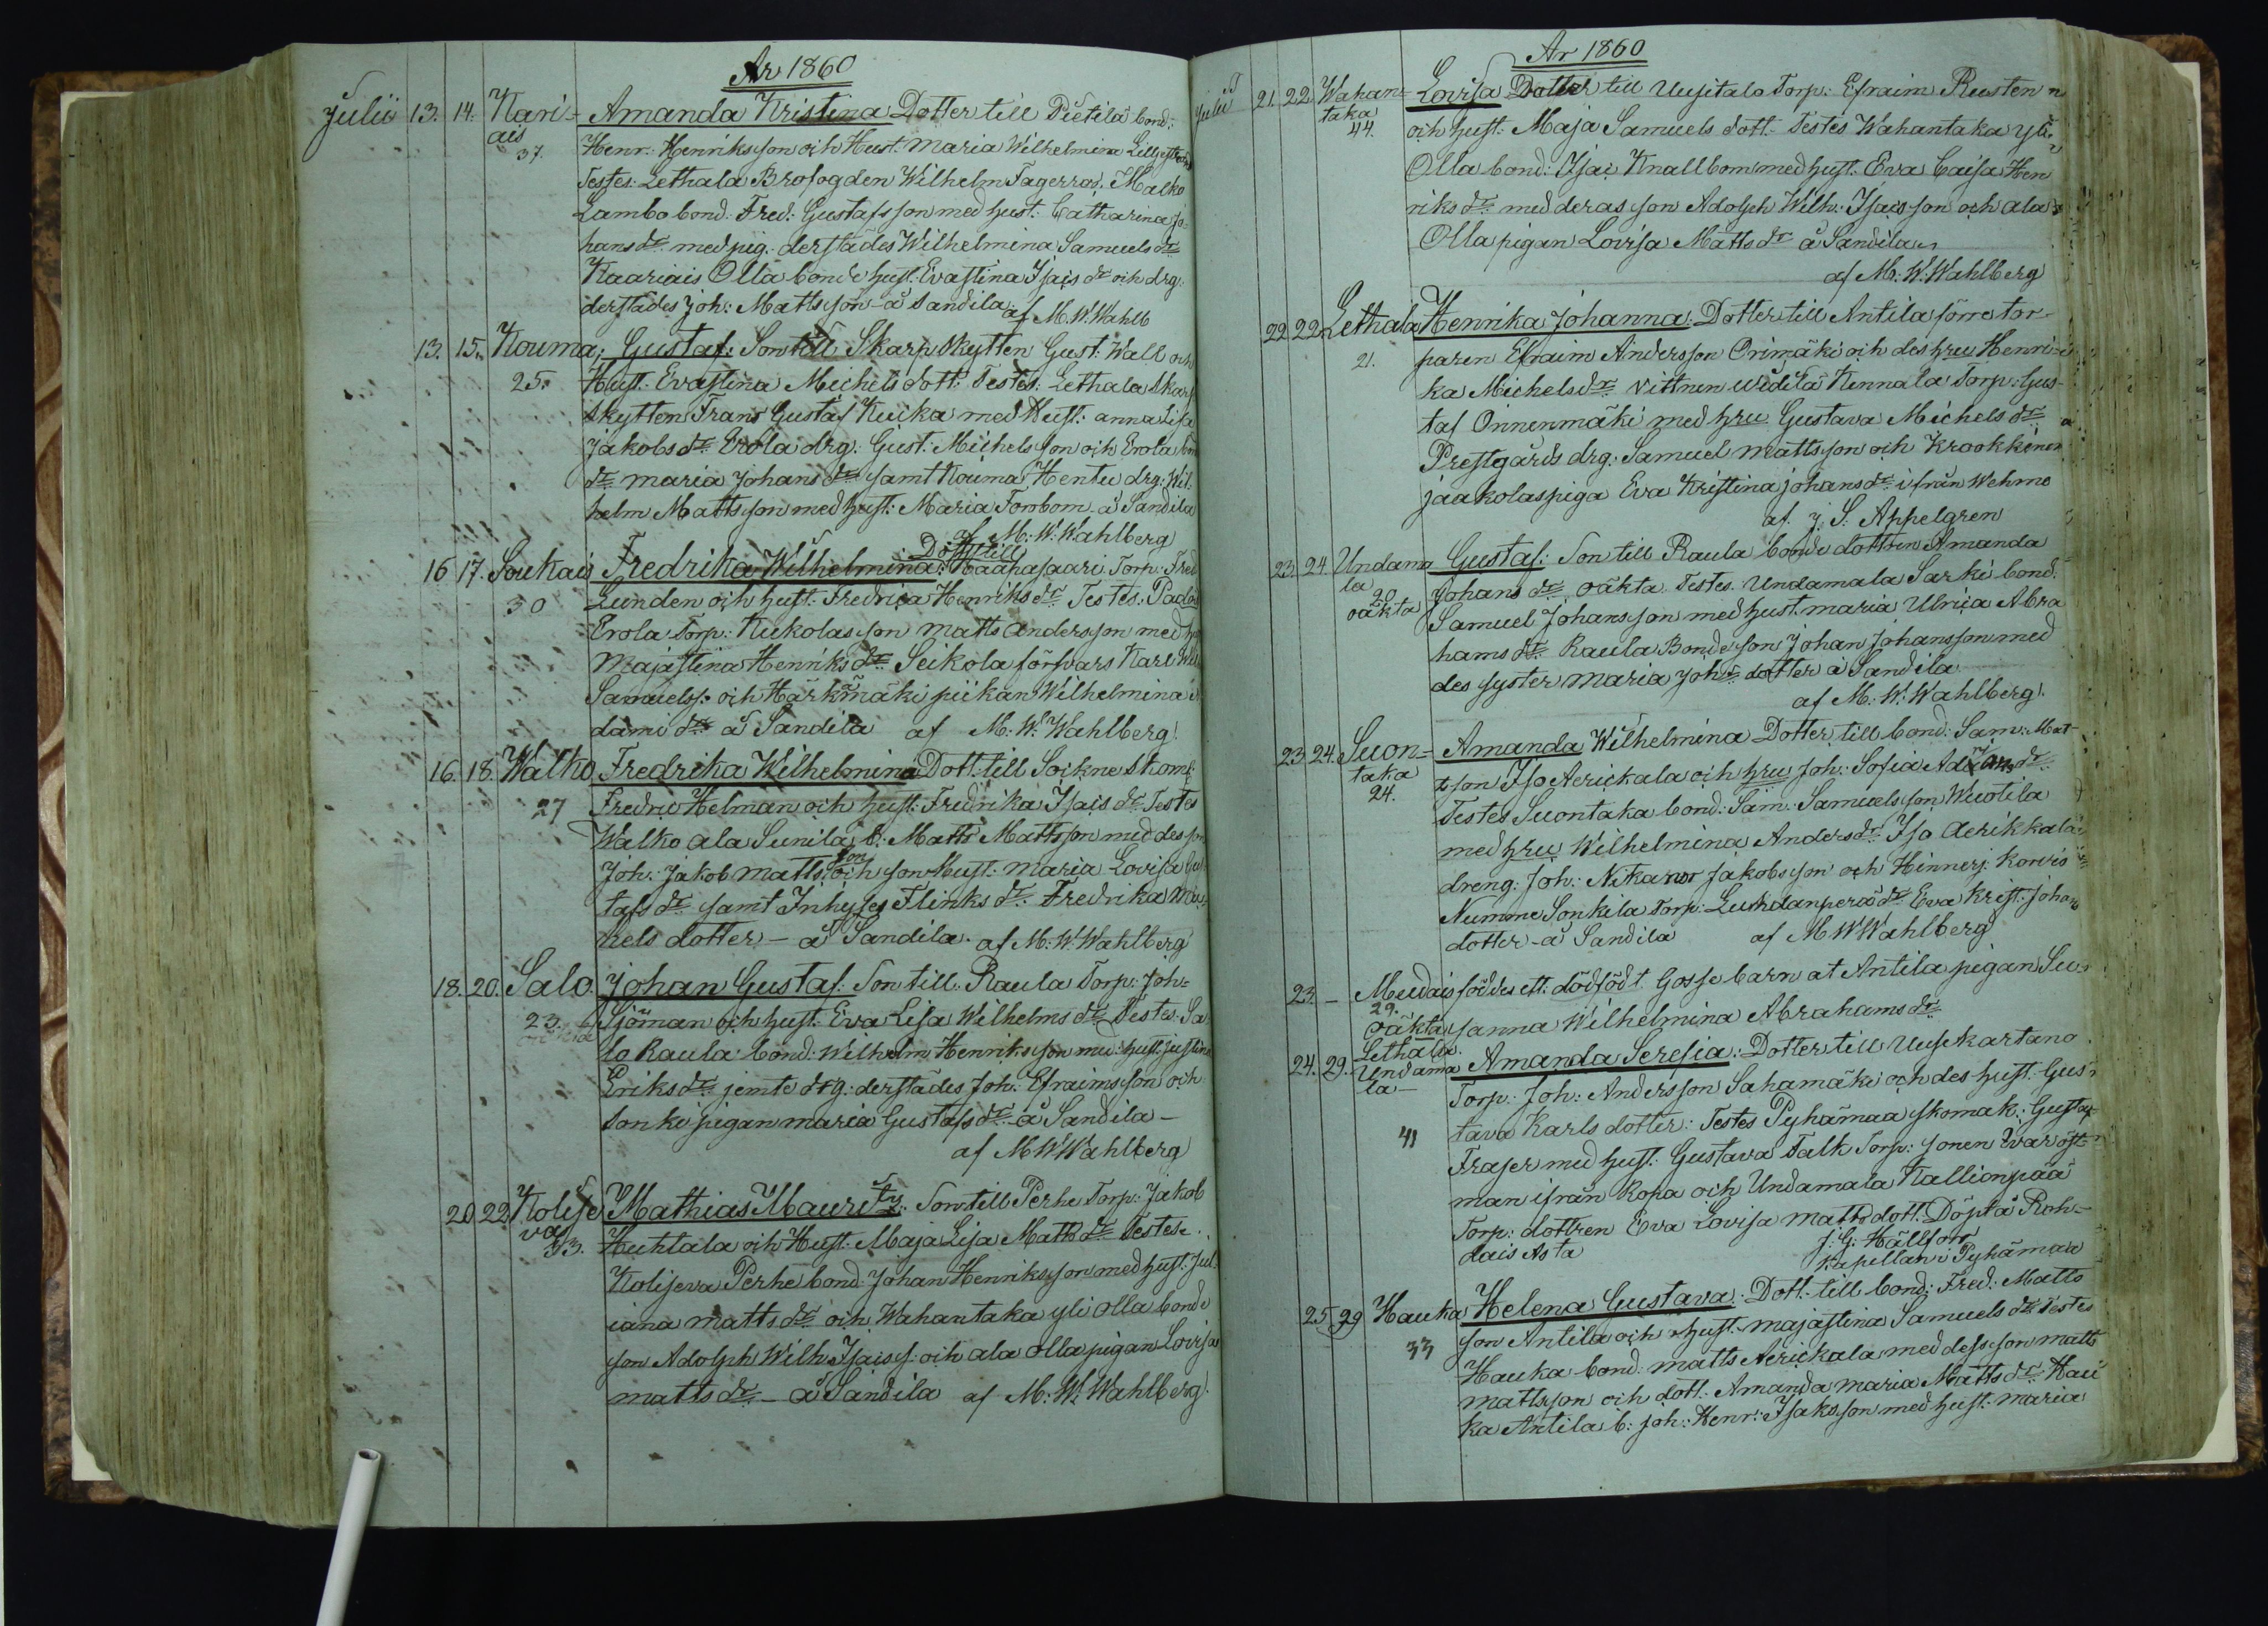 År 1860
Julii 13. 14. Kari- Amanda Kristina Dotter till Pietilä bond:
ais Henr: Henriksson och Hust. Maria Wilhelmina
37. Testes: Lethala Brofogden Wilhelm Fagerros, Malko
Lambo bond: Fred: Gustafsson med hust: Catharina Jo-
hans dr med pig. derstädes Wilhelmina Samuels dr
Kaariais Olla bonde hust. Evastina Isais dr och drg.
derstädes Joh: Mattsson å Sandila af M. W. Wahlb
13. 15. Kouma, Gustaf: Son till Skarpskytten Gust: Wall och
25. Hust. Evastina Michels dott: Testes: Lethala Skarp
skytten Frans Gustaf Kuika med Hust: anna Lisa
Jakobs dr Erola drg. Gust: Michelsson och Erola
dr maria Johans dr samt Kouma Hentu drg. Wil
helm Mattsson med hust: Maria Forsbom å Sandila
af M. W. Wahlberg
Dott till
16 17. Soukais Fredrika Wilhelmina: Haapasaari Torp: Fred
30 Lunden och hust. Fredrica Henriks dr Testes:
Erola Torp: Kukolasson matts andersson med
Majastina Henriks dr Seikola försvars Karl
Samuelss: och Härkämäki piikan Wilhelmina
dami dr å Sandila af M. W. Wahlberg
16. 18. Walko Fredrika Wilhelmina Dott. till Soikne Skom:
27 Fredric Helman och hust: Fredrika Isais dr Testes
Walko ala Sunila b. Matts Mattsson med des son
Joh: Jakob Mattsson och hust: Maria Lovisa
tafs dr samt Inhyses Flinks dr Fredrika
kels dotter – å Sandila. af M. W. Wahlberg
18. 20. Salo. Johan Gustaf: Son till Raula Torp: Joh:
23. Sjöman och hust: Eva Lisa Wilhelms dr Testes. Sa
lo Raula bond: Wilhelm Henriksson med hust. Justina
Eriks dr jemte drg: derstädes Joh: Efraimsson och
Sonki pigan maria Gustafs dr å Sandila –
af M W Wahlberg
20 22 Kolise Mathias Mauritz: Son till Perhe Torp: Jakob
va
33. Huhtala och Hust. Maja Lisa Matts dr Testes
Kolijeva Perhe bond: Johan Henriksson med hust. Jul
iana matts dr och Wahantaka yli olla bonde
son Adolph Wilh. Isaiss: och ala olla pigan Lovisa
matts dr – å Sandila af M. W. Wahlberg
År 1860
Julii 21. 22. Wahan- Lovisa Dotter till Uusitalo Torp: Efraim Rusten
taka och hust. Maja Samuels dott. Testes Wahantaka yli
44. Olla bond: Isai Knallbom med hust. Eva Caisa Hen
riks dr med deras son Adolph Wilh: Isaisson och ala
Olla pigan Lovisa Matts dr å Sandila
af M. W. Wahlberg
22 22 Lethala Henrika Johanna: Dotter till Antila förre tor-
21. paren Efraim Andersson Orimäki och des hru Henri-
ka Michels dr vittnen Kennala Torp: Gus-
taf Onnenmäki med hru Gustava Michels dr
Prestgårds drg: Samuel mattsson och Krookkinen
jaakolas piga Eva Kristina johans dr ifrån Wehmo
af J. S. Appelgren
23. 24. Undama Gustaf: Son till Raula bonde dottren Amanda
la Johans dr oäkta. Testes: Undamala Sarki bond.
20
oäkta Samuel Johansson med hust. maria Ulrica Abra
hams dr Raula Bonde son Johan Johansson med
des syster maria Johs dotter å Sandila
af M. W. Wahlberg.
23 24. Suon- Amanda Wilhelmina Dotter till bond: Sam: Mat-
taka tsson Iso Aerickala och hru Joh: Sofia dr
24. Testes Suontaka bond: Sam: Samuelsson Wuotila
med hru Wilhelmina Anders dr Iso Aerikkala
dreng: Joh: Nikanor Jakobsson och Hinnerj: Korvis
Numme Sonkila Torp: Luhdanperä dr Eva Krist: Johans
dotter å Sandila af M W Wahlberg
23. – Meudais föddes ett dödfödt Gosse barn at Antila pigan Su-
29.
oäkta sanna Wilhelmina Abrahams dr
Lethala.
24. 29. Undama Amanda Serefia: Dotter till Uusekartano
la – Torp: Joh: Andersson Sahamäki och des hust. Gus-
41 tava Karls dotter: Testes Pyhämaa skomak: Gustaf
Fraser med hust. Gustava Falk Torp: sonen Ivar öst-
man ifrån Ropa och Undamala Kallionpää
Torp: dottren Eva Lovisa matts dott. Döpt å Roh-
dais Asta J. G. Hällfors
Kapellan i Pyhämaa
25 29 Hauka Helena Gustava: Dott. till bond: Fred: Matts
33 son Antila och hust. majastina Samuels dr Testes
Hauka bond: matts Aerickala med dess son matts
mattsson och dott. Amanda maria Matts dr Hau
ka Antila b: joh: Henr: Isaksson med hust. maria